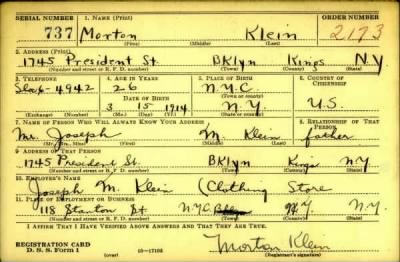 SERIAL NUMBER 1. NAME (Print) ORDER NUMBER
737 Morton Klein 2173
(First) (Middle) (Last)
2. ADDRESS (Print)
1745 President St. BKlyn Kings N.Y.
(Number and street or R. F. D. number) (Town) (County) (State)
3. TELEPHONE 4. AGE IN YEARS 5. PLACE OF BIRTH 6. COUNTRY OF CITIZENSHIP
4942 26 N.Y.C.
DATE OF BIRTH (Town or county)
3 15 1914 N.Y. U.S.
(Exchange) (Number) (Mo.) (Day) (Yr.) (State or country)
7. NAME OF PERSON WHO WILL ALWAYS KNOW YOUR ADDRESS 8. RELATIONSHIP OF THAT PERSON
Mr. Joseph M. Klein father
(Mr., Mrs., Miss) (First) (Middle) (Last)
9. ADDRESS OF THAT PERSON
1745 President St. BKlyn Kings NY
(Number and street or R. F. D. number) (Town) (County) (State)
10. EMPLOYER'S NAME
Joseph M. Klein (Clothing Store
11. PLACE OF EMPLOYMENT OR BUSINESS
118 Stanton St NYC NY. N.Y.
(Number and street or R. F. D. number) (Town) (County) (State)
I AFFIRM THAT I HAVE VERIFIED ABOVE ANSWERS AND THAT THEY ARE TRUE.
REGISTRATION CARD
D. S. S. Form 1 (over) Morton Klein
(Registrant's signature)